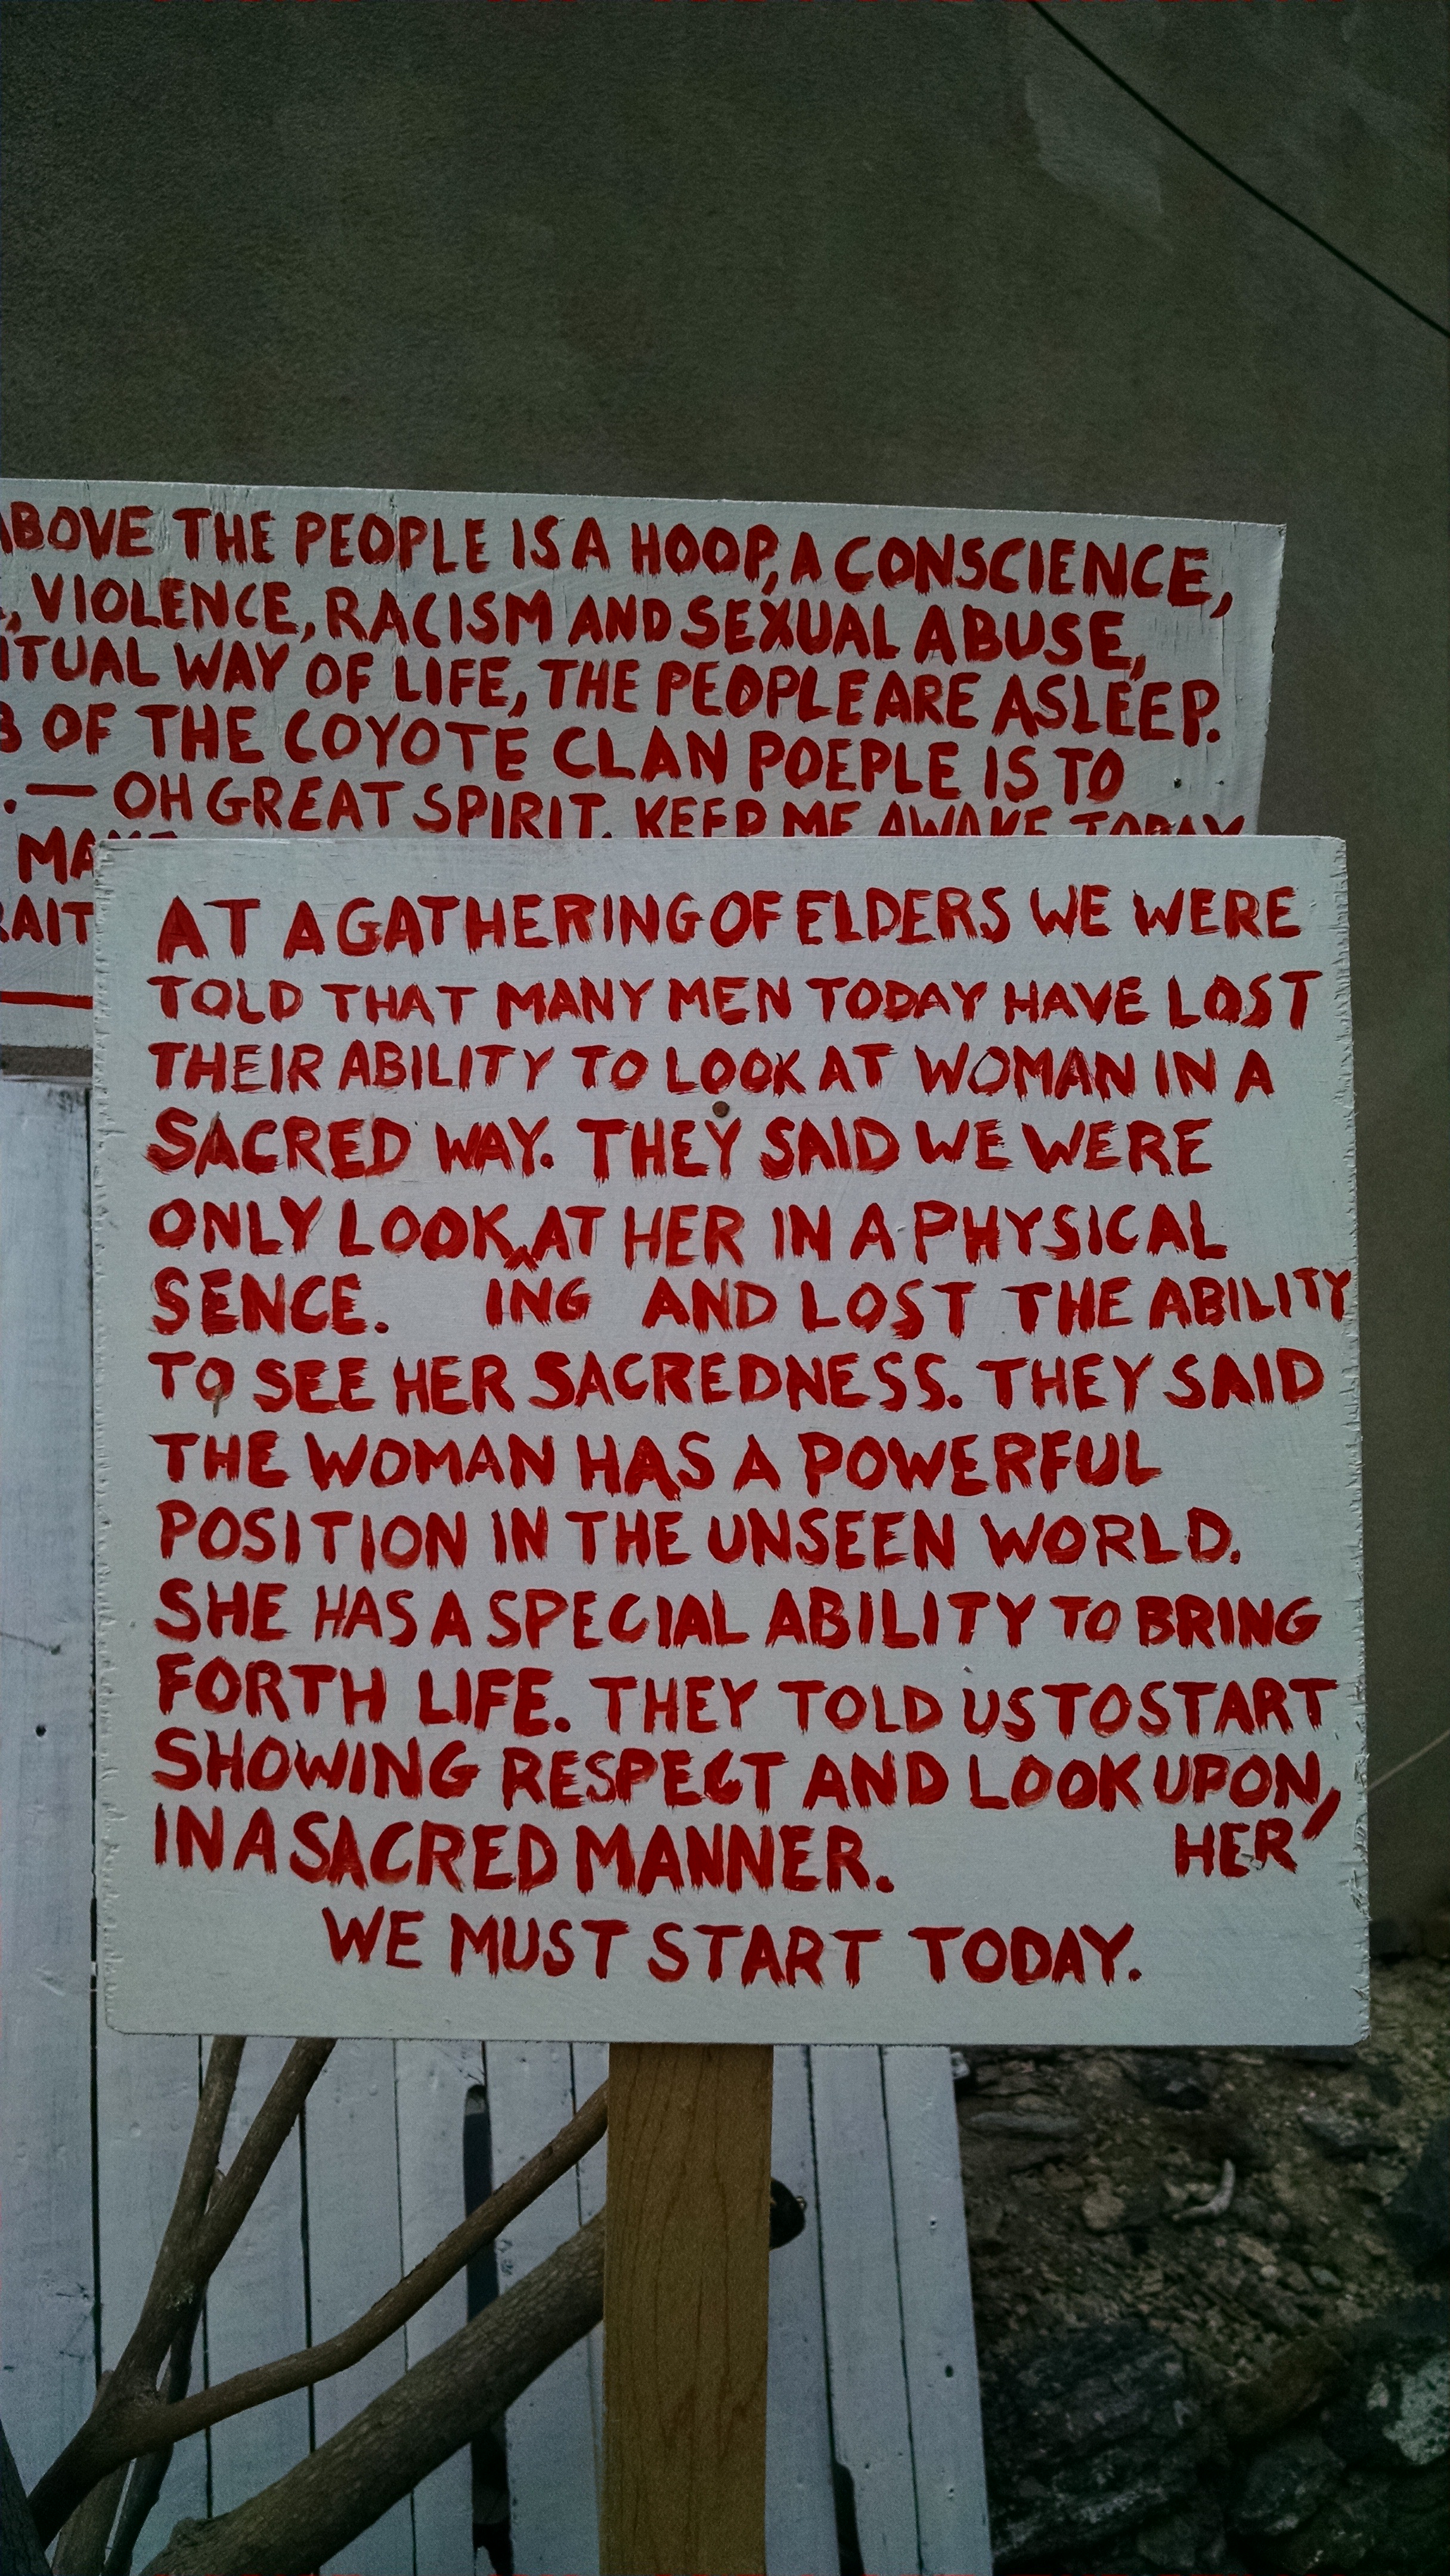 ABOVE THE PEOPLE IS A HOOP, A CONSCIENCE,
, VIOLENCE, RACISM AND SEXUAL ABUSE,
ITUAL WAY OF LIFE, THE PEOPLE ARE ASLEEP.
B OF THE COYOTE CLAN POEPLE IS TO
. — OH GREAT SPIRIT, KEEP ME AWAKE TODAY
AT A GATHERING OF ELDERS WE WERE
TOLD THAT MANY MEN TODAY HAVE LOST
THEIR ABILITY TO LOOK AT WOMAN IN A
SACRED WAY. THEY SAID WE WERE
ONLY LOOK^AT HER IN A PHYSICAL
SENCE. ING AND LOST THE ABILITY
TO SEE HER SACREDNESS. THEY SAID
THE WOMAN HAS A POWERFUL
POSITION IN THE UNSEEN WORLD.
SHE HAS A SPECIAL ABILITY TO BRING
FORTH LIFE. THEY TOLD US TO START
SHOWING RESPECT AND LOOK UPON,
IN A SACRED MANNER. HER
WE MUST START TODAY.